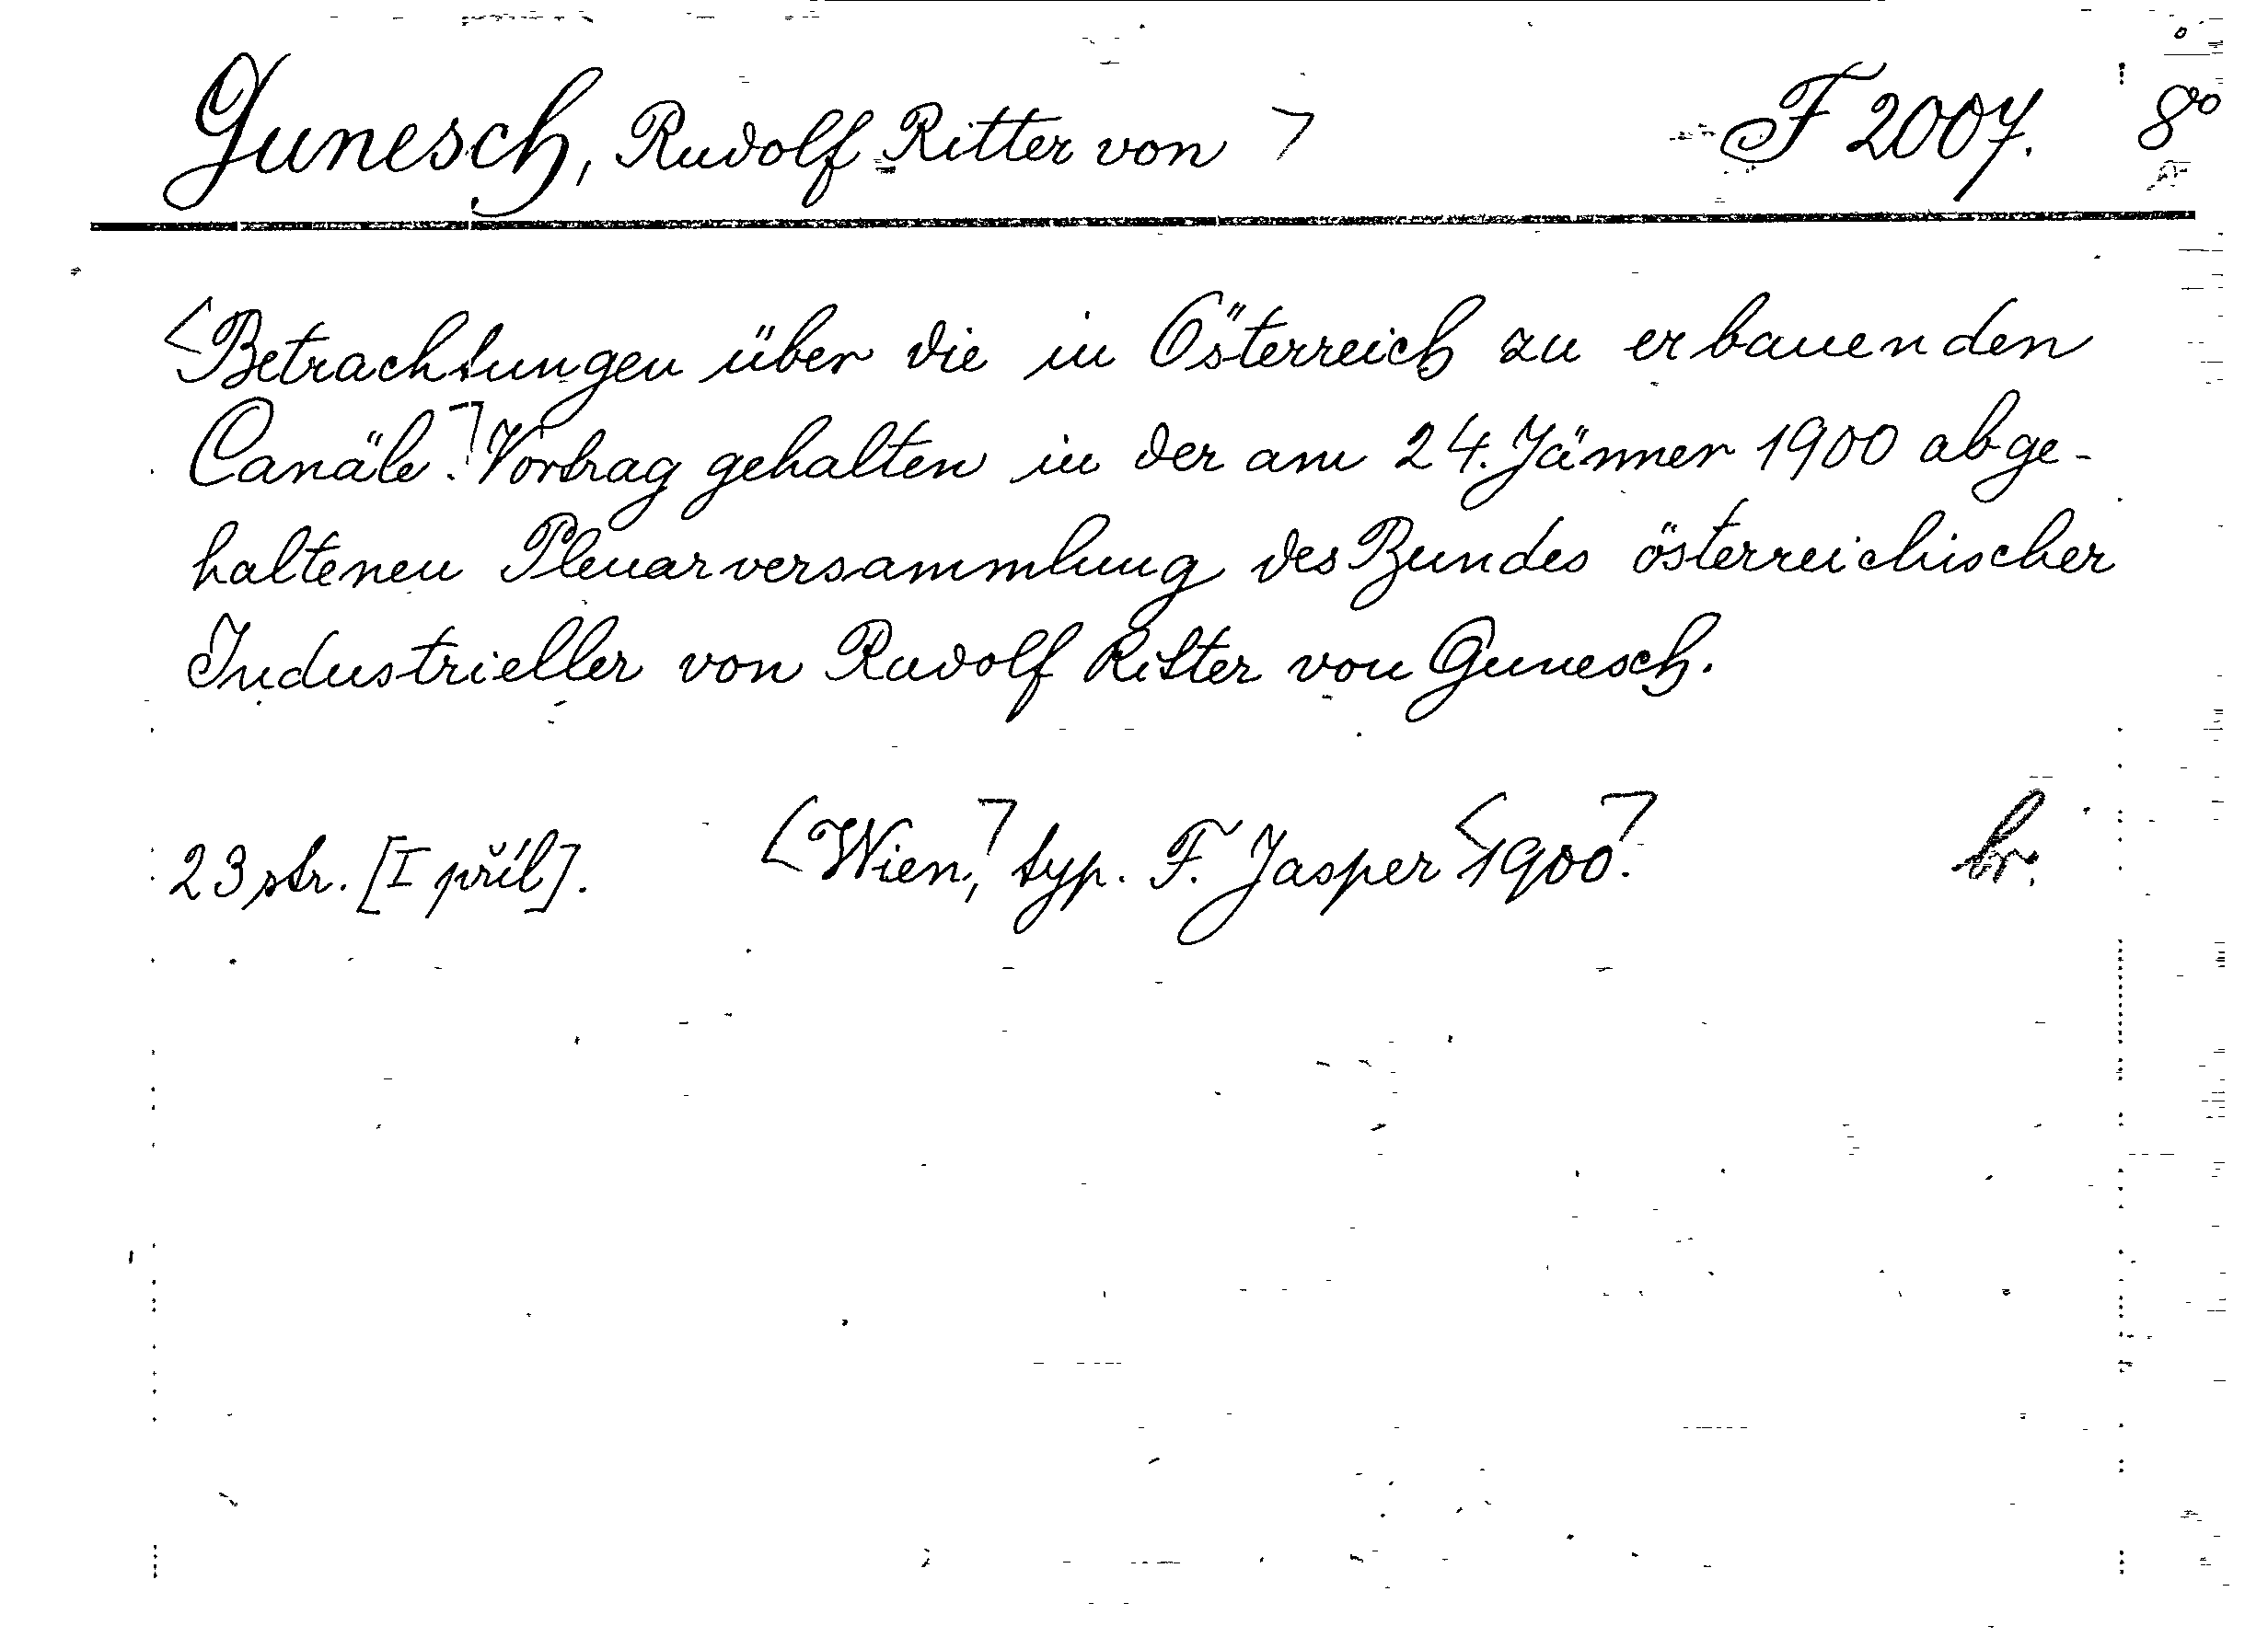 Gunesch, Rudolf Ritter von F 2007. 8°
Betrachtungen über die in Österreich zu erbauenden
Canäle. Vortrag gehalten in der am 24. Jänner 1900 abge-
haltenen Plenarversammlung des Bundes österreichischer
Industrieller von Rudolf Ritter von Gunesch.
23 str. [I příl]. Wien, typ. F. Jasper 1900. br.